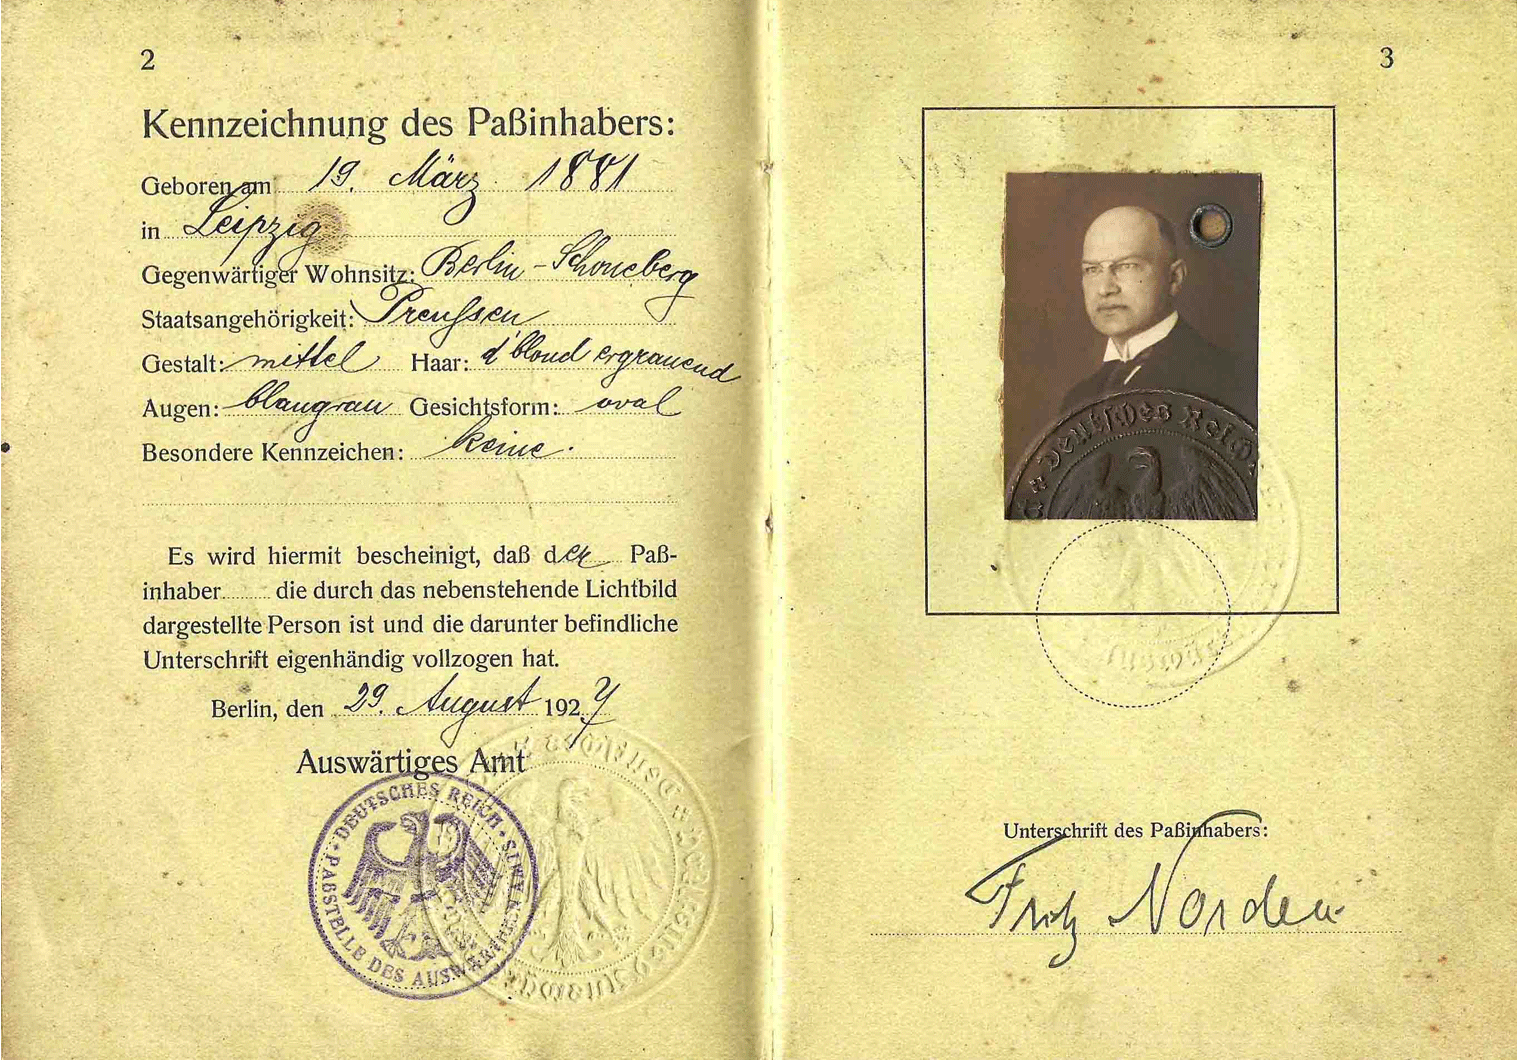 2
Kennzeichnung des Paßinhabers:
Geboren am 19. März 1881
in Leipzig
Gegenwärtiger Wohnsitz: Berlin-Schöneberg
Staatsangehörigkeit: Preußen
Gestalt: mittel Haar: d'blond ergrauend
Augen: blaugrau Gesichtsform: oval
Besondere Kennzeichen: keine.
Es wird hiermit bescheinigt, daß der Paß-
inhaber die durch das nebenstehende Lichtbild
dargestellte Person ist und die darunter befindliche
Unterschrift eigenhändig vollzogen hat.
Berlin, den 29. August 1927
Auswärtiges Amt
DEUTSCHES REICH
PAßSTELLE DES AUSWÄRTIGEN AMTS
Deutsches Reich
3
Deutsches Reich
Unterschrift des Paßinhabers:
Fritz Norden